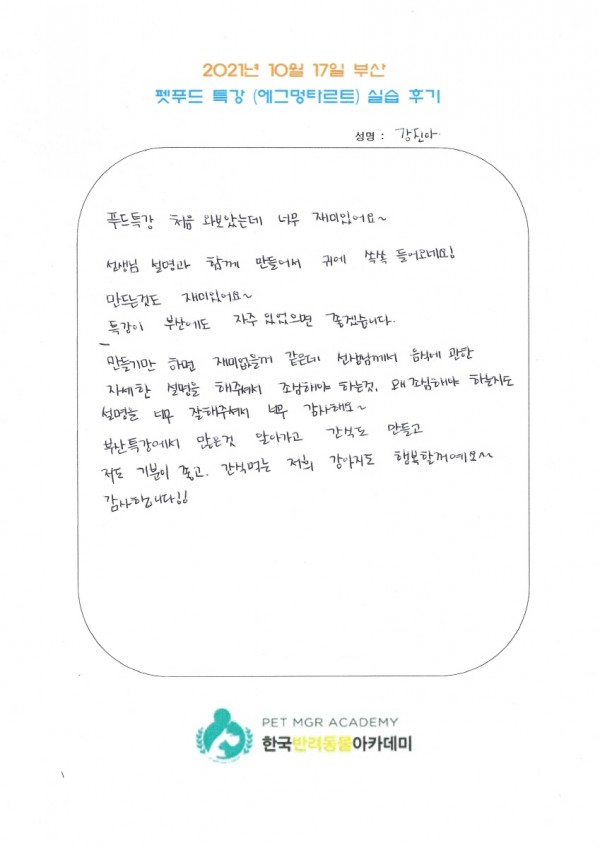 2021년 10월 17일 부산
펫푸드 특강 (에그멍타르트) 실습 후기
성명 : 강진아
푸드특강 처음 와보았는데 너무 재미있어요~
선생님 설명과 함께 만들어서 귀에 쏙쏙 들어오네요!
만드는것도 재미있어요~
특강이 부산에도 자주 있었으면 좋겠습니다.
만들기만 하면 재미없을꺼 같은데 선생님께서 음식에 관한
자세한 설명을 해주셔서 조심해야 하는것, 왜 조심해야 하는지도
설명을 너무 잘해주셔서 너무 감사해요~
부산특강에서 많은것 알아가고 간식도 만들고
저도 기분이 좋고, 간식먹는 저희 강아지도 행복할꺼예요~
감사합니다!!
PET MGR ACADEMY
한국반려동물아카데미